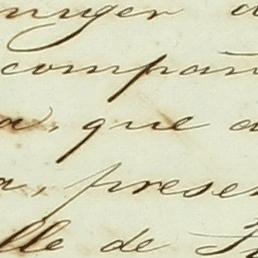 muger
compañ
a, que
a, presen
lle de